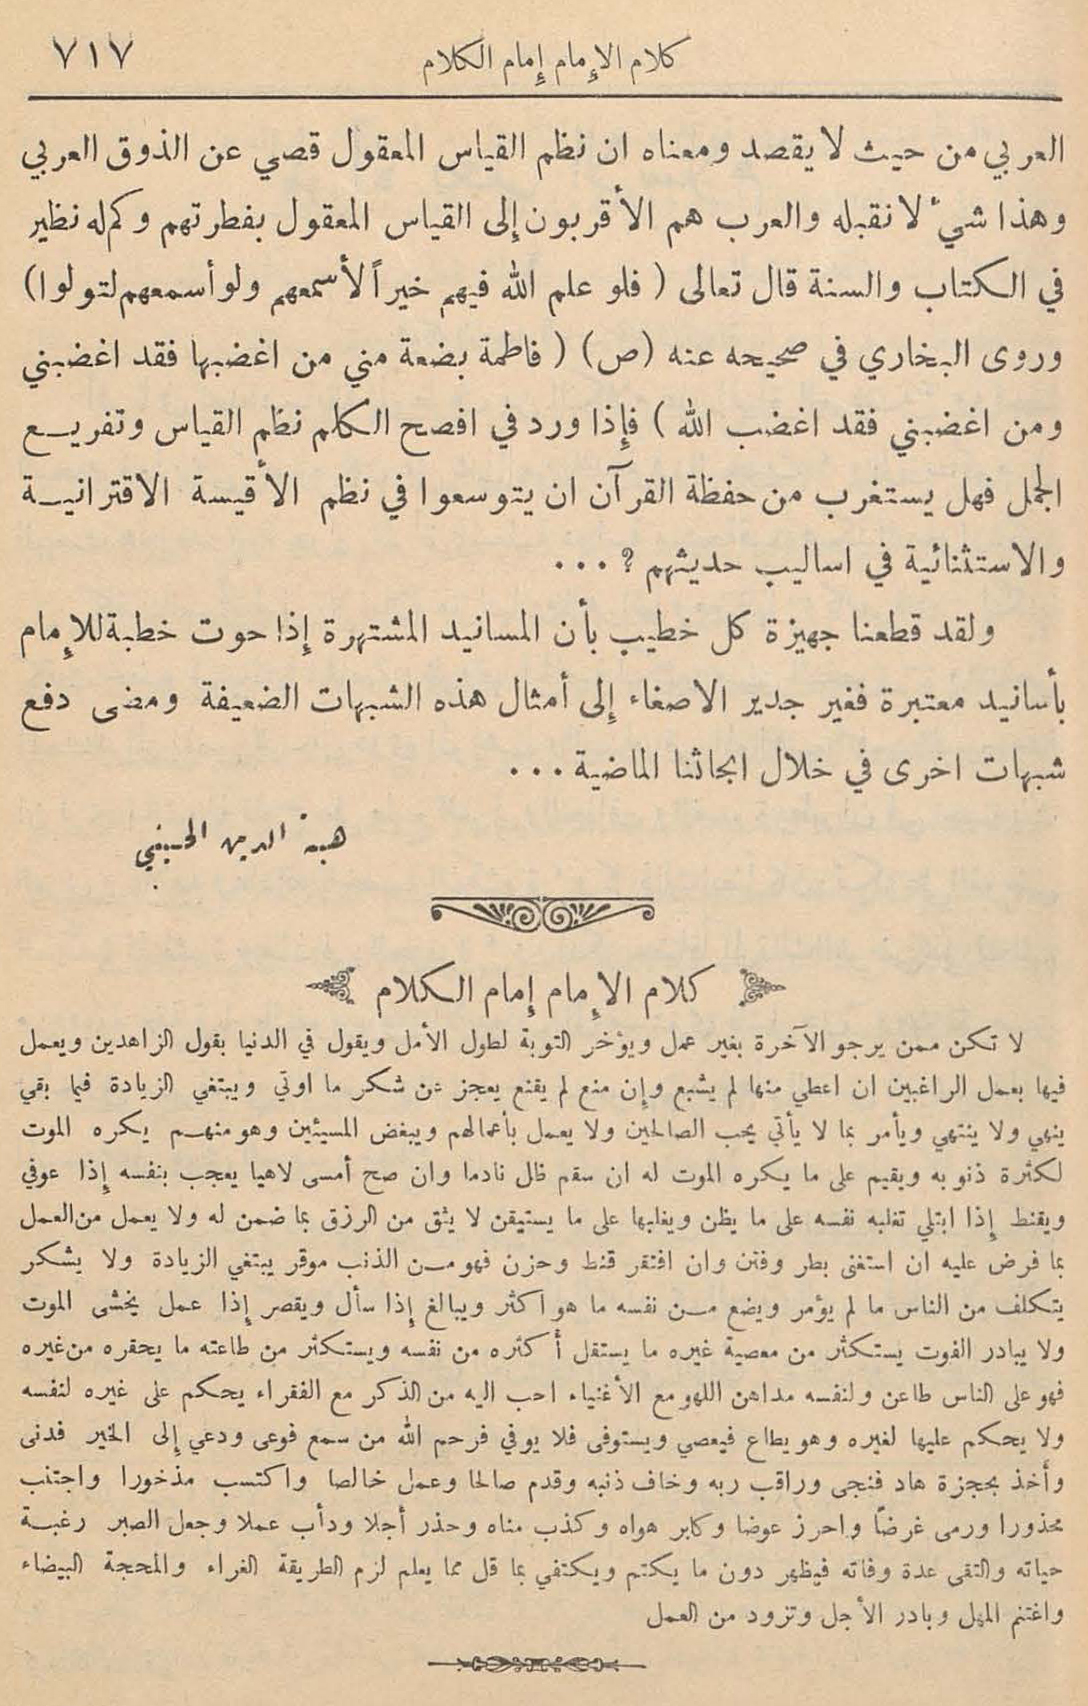 كلام الإمام إمام الكلام ٧١٧
العربي من حيث لا يقصد ومعناه ان نظم القياس المعقول قصي عن الذوق العربي
وهذا شيء لا نقبله والعرب هم الأقربون إلى القياس المعقول بفطرتهم وكم له نظير
في الكتاب والسنة قال تعالى ( فلو علم الله فيهم خيراً لأسمعهم ولو أسمعهم لتولوا )
وروى البخاري في صحيحه عنه (ص) ( فاطمة بضعة مني من اغضبها فقد اغضبني
ومن اغضبني فقد اغضب الله ) فإذا ورد في افصح الكلم نظم القياس وتفريع
الجمل فهل يستغرب من حفظة القرآن ان يتوسعوا في نظم الأقيسة الاقترانية
والاستثنائية في اساليب حديثهم ؟ ...
ولقد قطعنا جهيزة كل خطيب بأن المسانيد المشتهرة إذا حوت خطبة للإمام
بأسانيد معتبرة فغير جدير الاصغاء إلى أمثال هذه الشبهات الضعيفة ومضى دفع
شبهات اخرى في خلال ابحاثنا الماضية ...
هبة الدين الحسيني
كلام الإمام إمام الكلام
لا تكن ممن يرجو الآخرة بغير عمل ويؤخر التوبة لطول الأمل ويقول في الدنيا بقول الزاهدين ويعمل
فيها بعمل الراغبين ان اعطي منها لم يشبع وإن منع لم يقنع يعجز عن شكر ما اوتي ويبتغي الزيادة فيما بقي
ينهي ولا ينتهي ويأمر بما لا يأتي يحب الصالحين ولا يعمل بأعمالهم ويبغض المسيئين وهو منهم يكره الموت
لكثرة ذنوبه ويقيم على ما يكره الموت له ان سقم ظل نادما وان صح أمسى لاهيا يعجب بنفسه إذا عوفي
ويقنط إذا ابتلي تغلبه نفسه على ما يظن ويغلبها على ما يستيقن لا يثق من الرزق بما ضمن له ولا يعمل من العمل
بما فرض عليه ان استغنى بطر وفتن وان افتقر قنط وحزن فهو من الذنب موقر يبتغي الزيادة ولا يشكر
يتكلف من الناس ما لم يؤمر ويضع من نفسه ما هو اكثر ويبالغ إذا سأل ويقصر إذا عمل يخشى الموت
ولا يبادر الفوت يستكثر من معصية غيره ما يستقل أكثره من نفسه ويستكثر من طاعته ما يحقره من غيره
فهو على الناس طاعن ولنفسه مداهن اللهو مع الأغنياء احب اليه من الذكر مع الفقراء يحكم على غيره لنفسه
ولا يحكم عليها لغيره وهو يطاع فيعصي ويستوفى فلا يوفي فرحم الله من سمع فوعى ودعي إلى الخير فدنى
وأخذ بحجزة هاد فنجى وراقب ربه وخاف ذنبه وقدم صالحا وعمل خالصا واكتسب مذخورا واجتنب
محذورا ورمى غرضاً واحرز عوضا وكابر هواه وكذب مناه وحذر أجلا ودأب عملا وجعل الصبر رغبة
حياته والتقى عدة وفاته فيظهر دون ما يكتم ويكتفي بما قل مما يعلم لزم الطريقة الغراء والمحجة البيضاء
واغتنم المهل وبادر الأجل وتزود من العمل